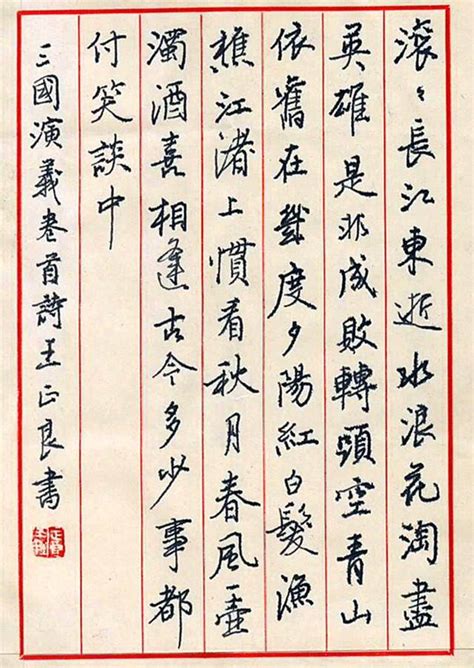 滾々長江東逝水浪花淘盡
英雄是非成敗轉頭空青山
依舊在幾度夕陽紅白髮漁
樵江渚上慣看秋月春風一壺
濁酒喜相逢古今多少事都
付笑談中
三國演義卷首詩王正良書